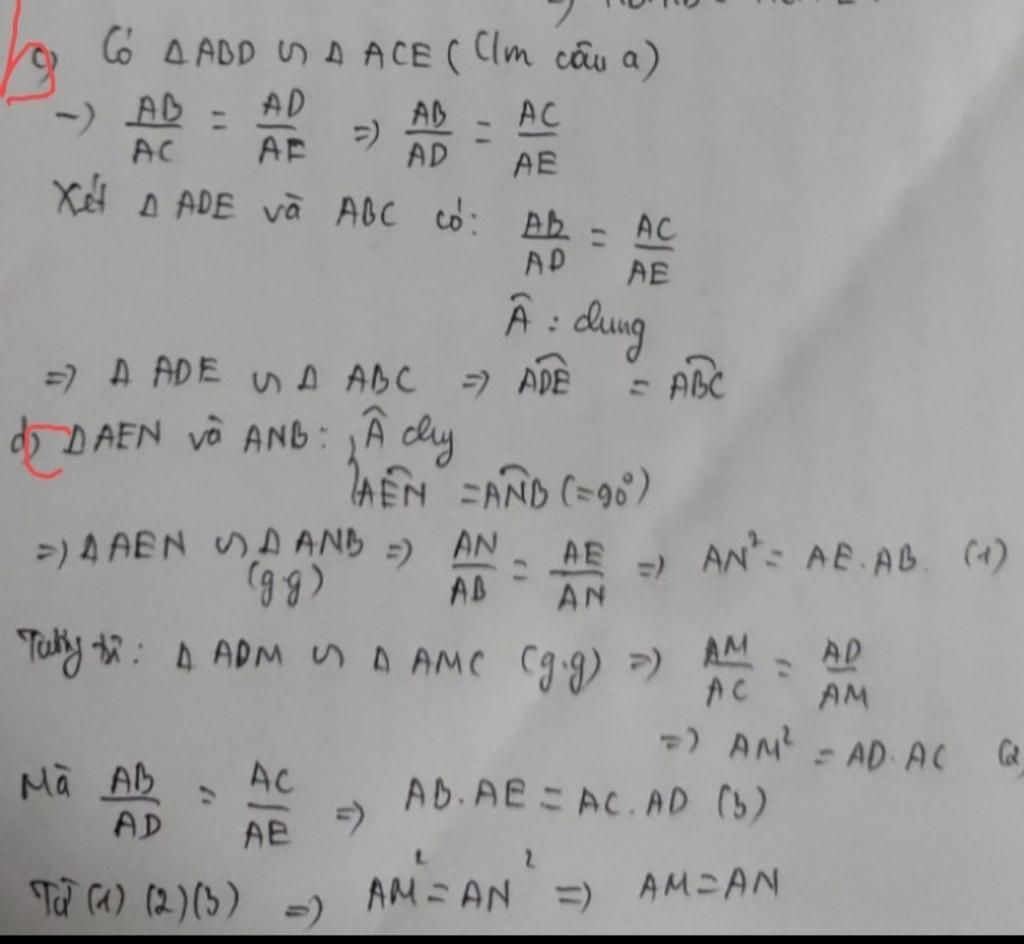 b) Có Δ ABD ∽ Δ ACE (Clm câu a)
→) AB/AC = AD/AE => AB/AD = AC/AE
Xét Δ ADE và ABC có: AB/AD = AC/AE
Â : chung
=> Δ ADE ∽ Δ ABC => ADE = ABC
c) ΔAEN và ANB: Â chg
AEN = ANB (=90°)
=> Δ AEN ∽ Δ ANB => AN/AB = AE/AN => AN² = AE.AB. (1)
(g.g)
Tương tự: Δ ADM ∽ Δ AMC (g.g) => AM/AC = AD/AM
=> AM² = AD.AC (2
Mà AB/AD = AC/AE => AB.AE = AC.AD (3)
Từ (1) (2) (3) => AM² = AN² => AM = AN